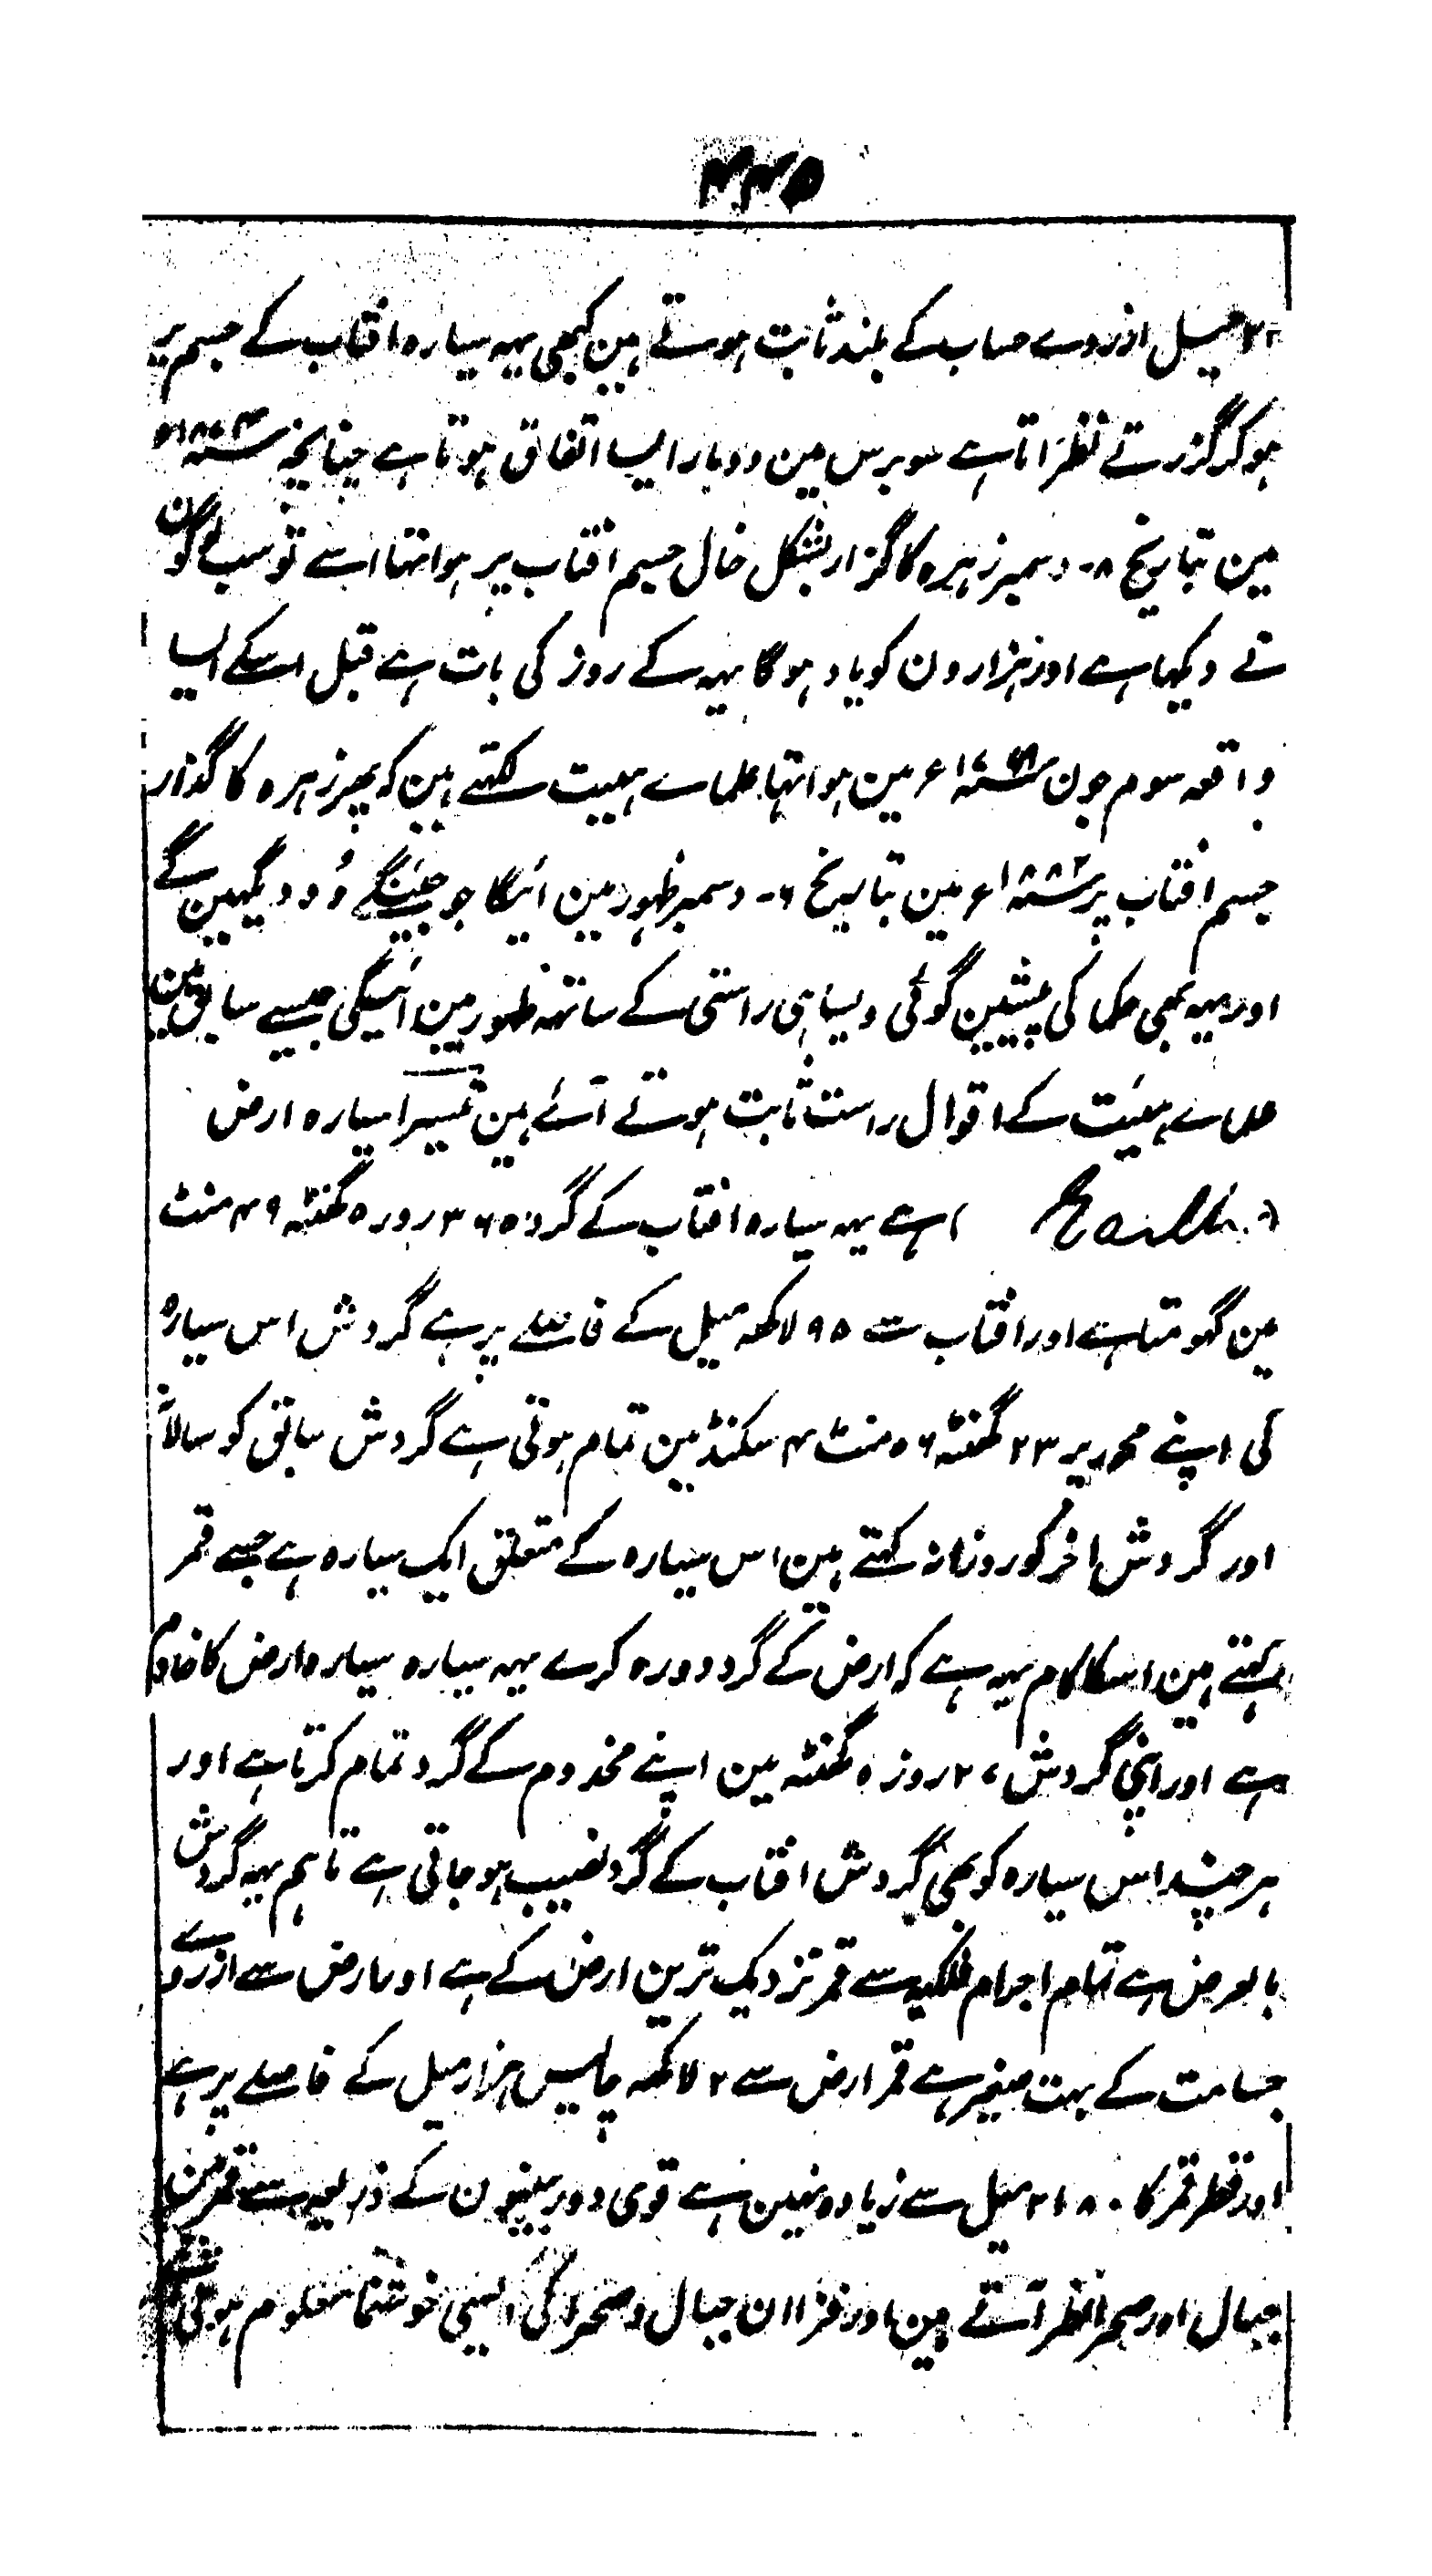 ۴۴۵
۲۲ میل ازروے حساب کے بلند ثابت ہوتے ہین کبھی یہہ سیارہ افتاب کے جسم پر
ہو کر گزرتے نظر اتا ہے سو برس مین دوبار ایسا اتفاق ہوتا ہے چنانچہ سنہ ۱۸۷۴ء
مین بتاریخ ۸- دسمبر زہرہ کا گزار بشکل خال جسم افتاب پر ہوا تہا اسے تو سب لوگون
نے دیکہا ہے اور ہزارون کو یاد ہوگا یہہ کے روز کی بات ہے قبل اسکے ایسا
واقعہ سوم جون سنہ ۱۷۶۹ء مین ہوا تہا علماے ہیبت لکہتے ہین کہ پھر زہرہ کا گذار
جسم افتاب پر سنہ ۱۸۸۲ء مین بتاریخ ۶- دسمبر ظہور مین ائیگا جو جیئنگے وُہ دیکہین گے
اور یہہ بھی حکما کی پیشین گوئی ویسا ہی راستی کے ساتہہ ظہور مین ائیگی جیسے سابق مین
علماے ہیئت کے اقوال راست ثابت ہوتے آئے ہین تیسرا سیارہ ارض
( Earth ) ہے یہہ سیارہ افتاب کے گرد ۳۶۵ روز ۵ گھنٹہ ۴۹ منٹ
مین گہومتا ہے اور افتاب سے ۹۵ لاکھہ میل کے فاصلے پر ہے گردش اس سیارہ
کی اپنے محور پر ۲۳ گھنٹہ ۵۶ منٹ ۴ سکنڈ مین تمام ہوتی ہے گردش سابق کو سالانہ
اور گردش اخر کو روزانہ کہتے ہین اس سیارہ کے متعلق ایک سیارہ ہے جسے قمر
کہتے ہین اسکا کام یہہ ہے کہ ارض کے گرد دورہ کرے یہہ سیارہ سیارہ ارض کا خادم
ہے اور اپنی گردش ۲۷ روز ۵ گھنٹہ مین اپنے مخدوم کے گرد تمام کرتا ہے اور
ہر چند اس سیارہ کو بھی گردش افتاب کے گرد نصیب ہو جاتی ہے تاہم یہہ گردش
بالعرض ہے تمام اجرام فلکیہ سے قمر نزدیک ترین ارض کے ہے اور ارض سے ازروے
جسامت کے بہت صغیر ہے قمر ارض سے ۲ لاکھہ چالیس ہزار میل کے فاصلے پر ہے
اور قطر قمر کا ۲۱۸۰ میل سے زیادہ نہین ہے قوی دوربینون کے ذریعہ سے قمر مین
جبال اور صحرا نظر آتے ہین اور فزا ان جبال و صحرا کی ایسی خوشنما معلوم ہوتی